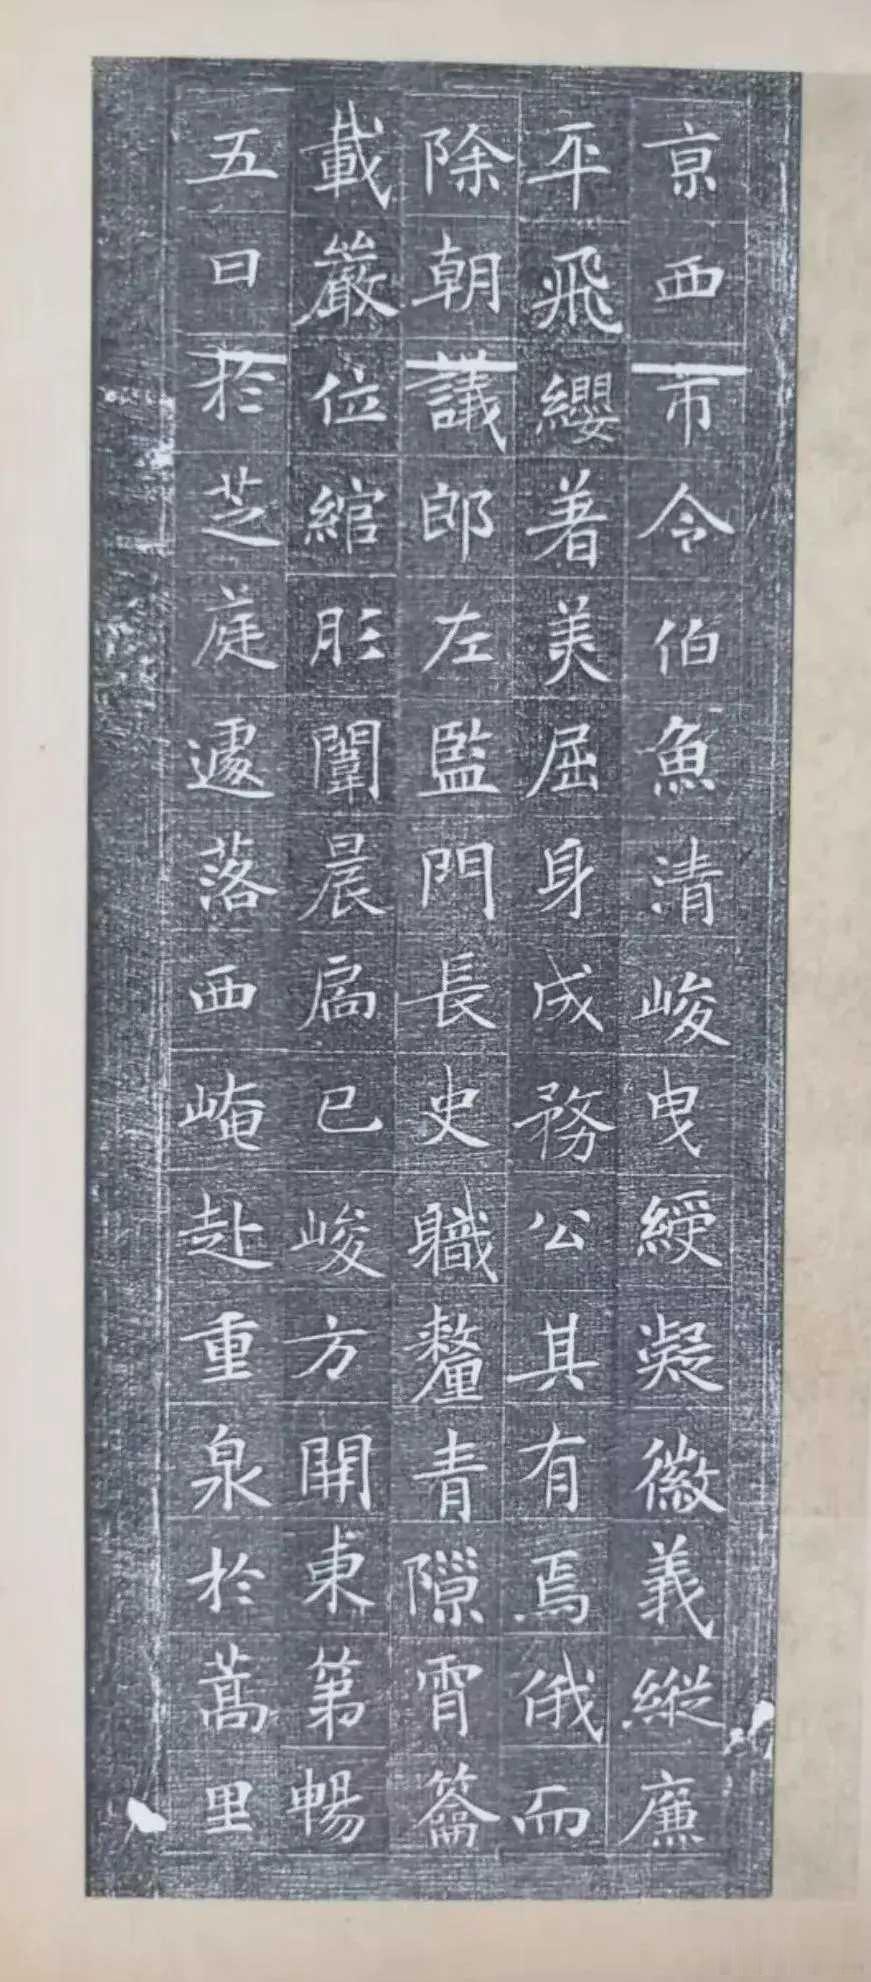 京西市令伯魚清峻曳綬凝徽義縱廉
平飛纓著美屈身成務公其有焉俄而
除朝議郎左監門長史職釐青隙霄籥
載嚴位綰彤闈晨扃已峻方開東第暢
五日於芝莚遽落西崦赴重泉於蒿里